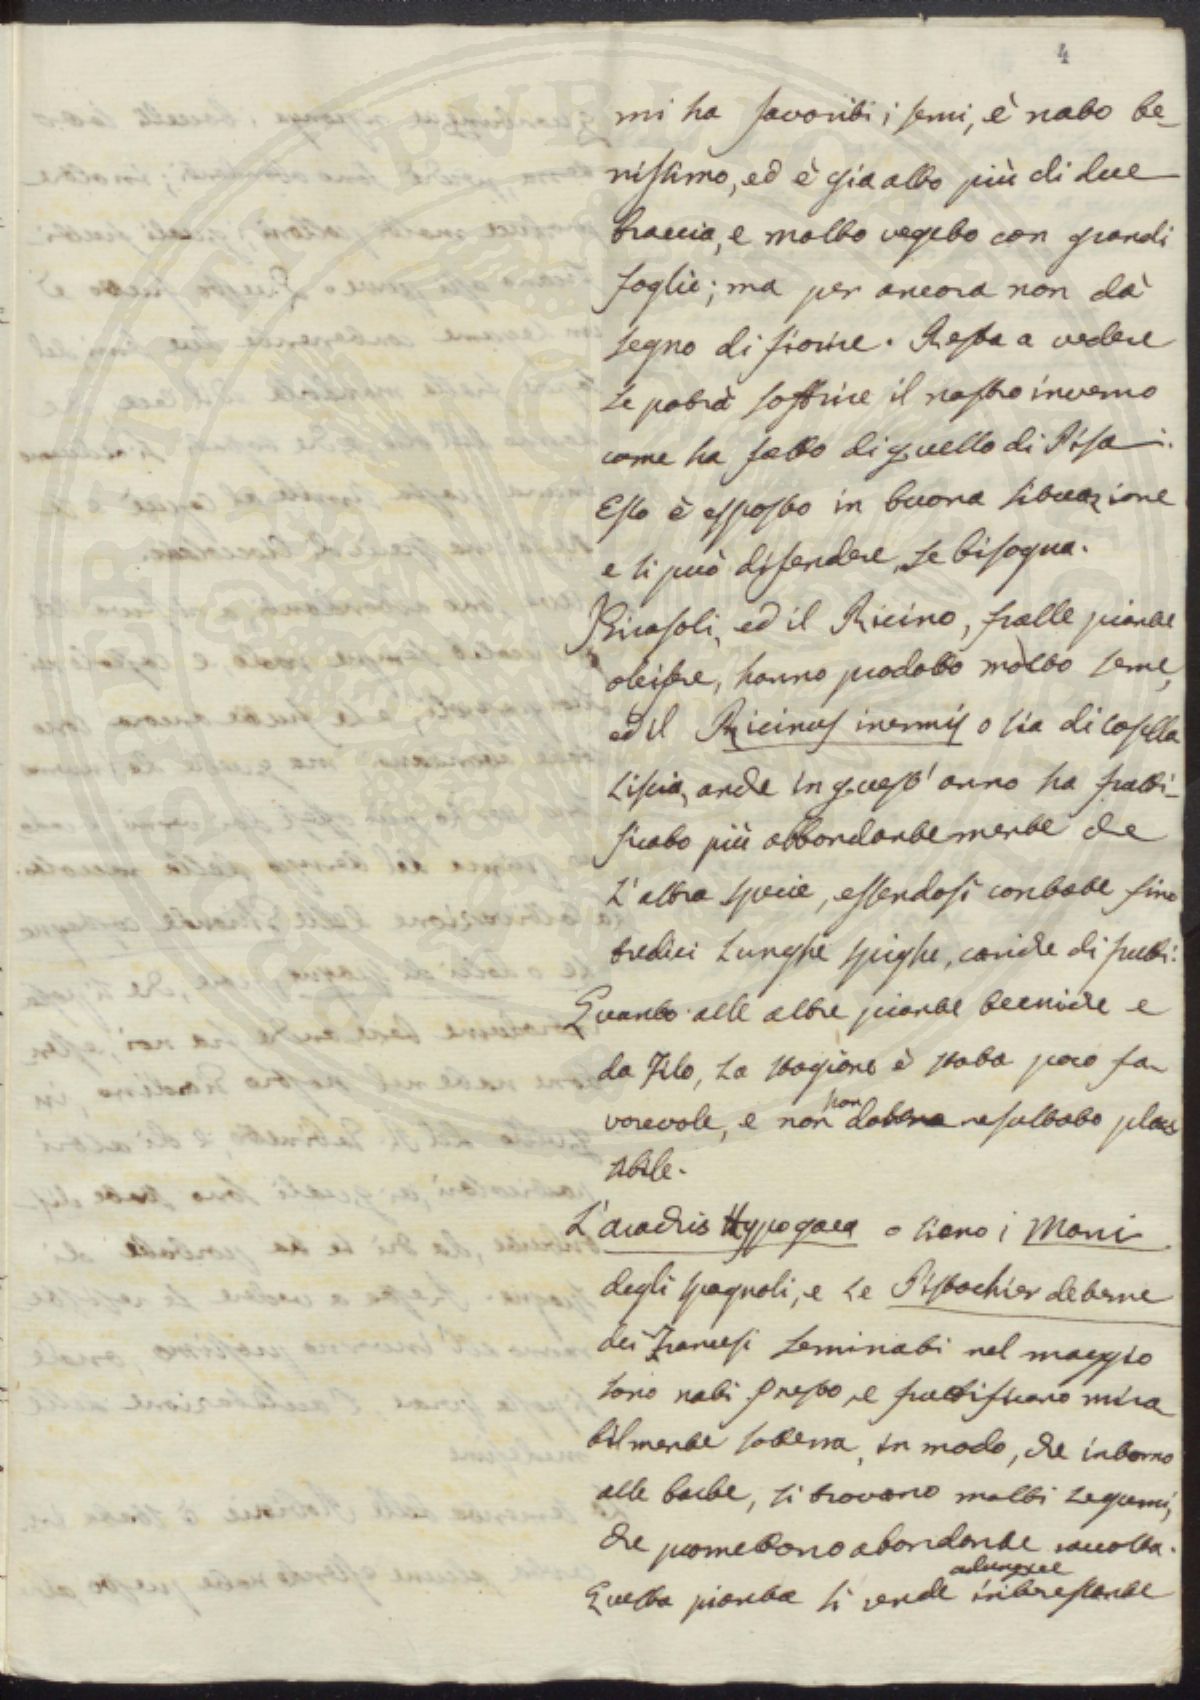 4
mi ha favoriti i semi, è nato be-
nissimo, ed è gia alto più di due
braccia, e molto vegeto con grandi
foglie; ma per ancora non dà
segno di fiorire. Resta a vedere
se potrà soffrire il nostro inverno
come ha fatto di quello di Pisa.
Esso è esposto in buona situazione
e si può difendere, se bisogna.
Girasoli, ed il Ricino, fralle piante
oleifere, hanno prodotto molto seme,
ed il Ricinus inermis o sia di cossella
liscia, anche in quest' anno ha frutti-
ficato più abbondantemente che
l'altra specie, essendosi contate fino
tredici lunghe spighe, cariche di frutti.
Quanto alle altre piante tecniche e
da Filo, la stagione è stata poco fa-
vorevole, e non han resultato plau
sibile.
L'arachis Hypogaea o siano i Mani
degli spagnoli, e le Pistachier deterre
dei Francesi seminati nel maggio
sono nati presto, e fruttificano mira
bilmente sotterra, in modo, che intorno
alle barbe, si trovano molti legumi,
che promettono abondante raccolta.
adunque
Questa pianta si rende interessante